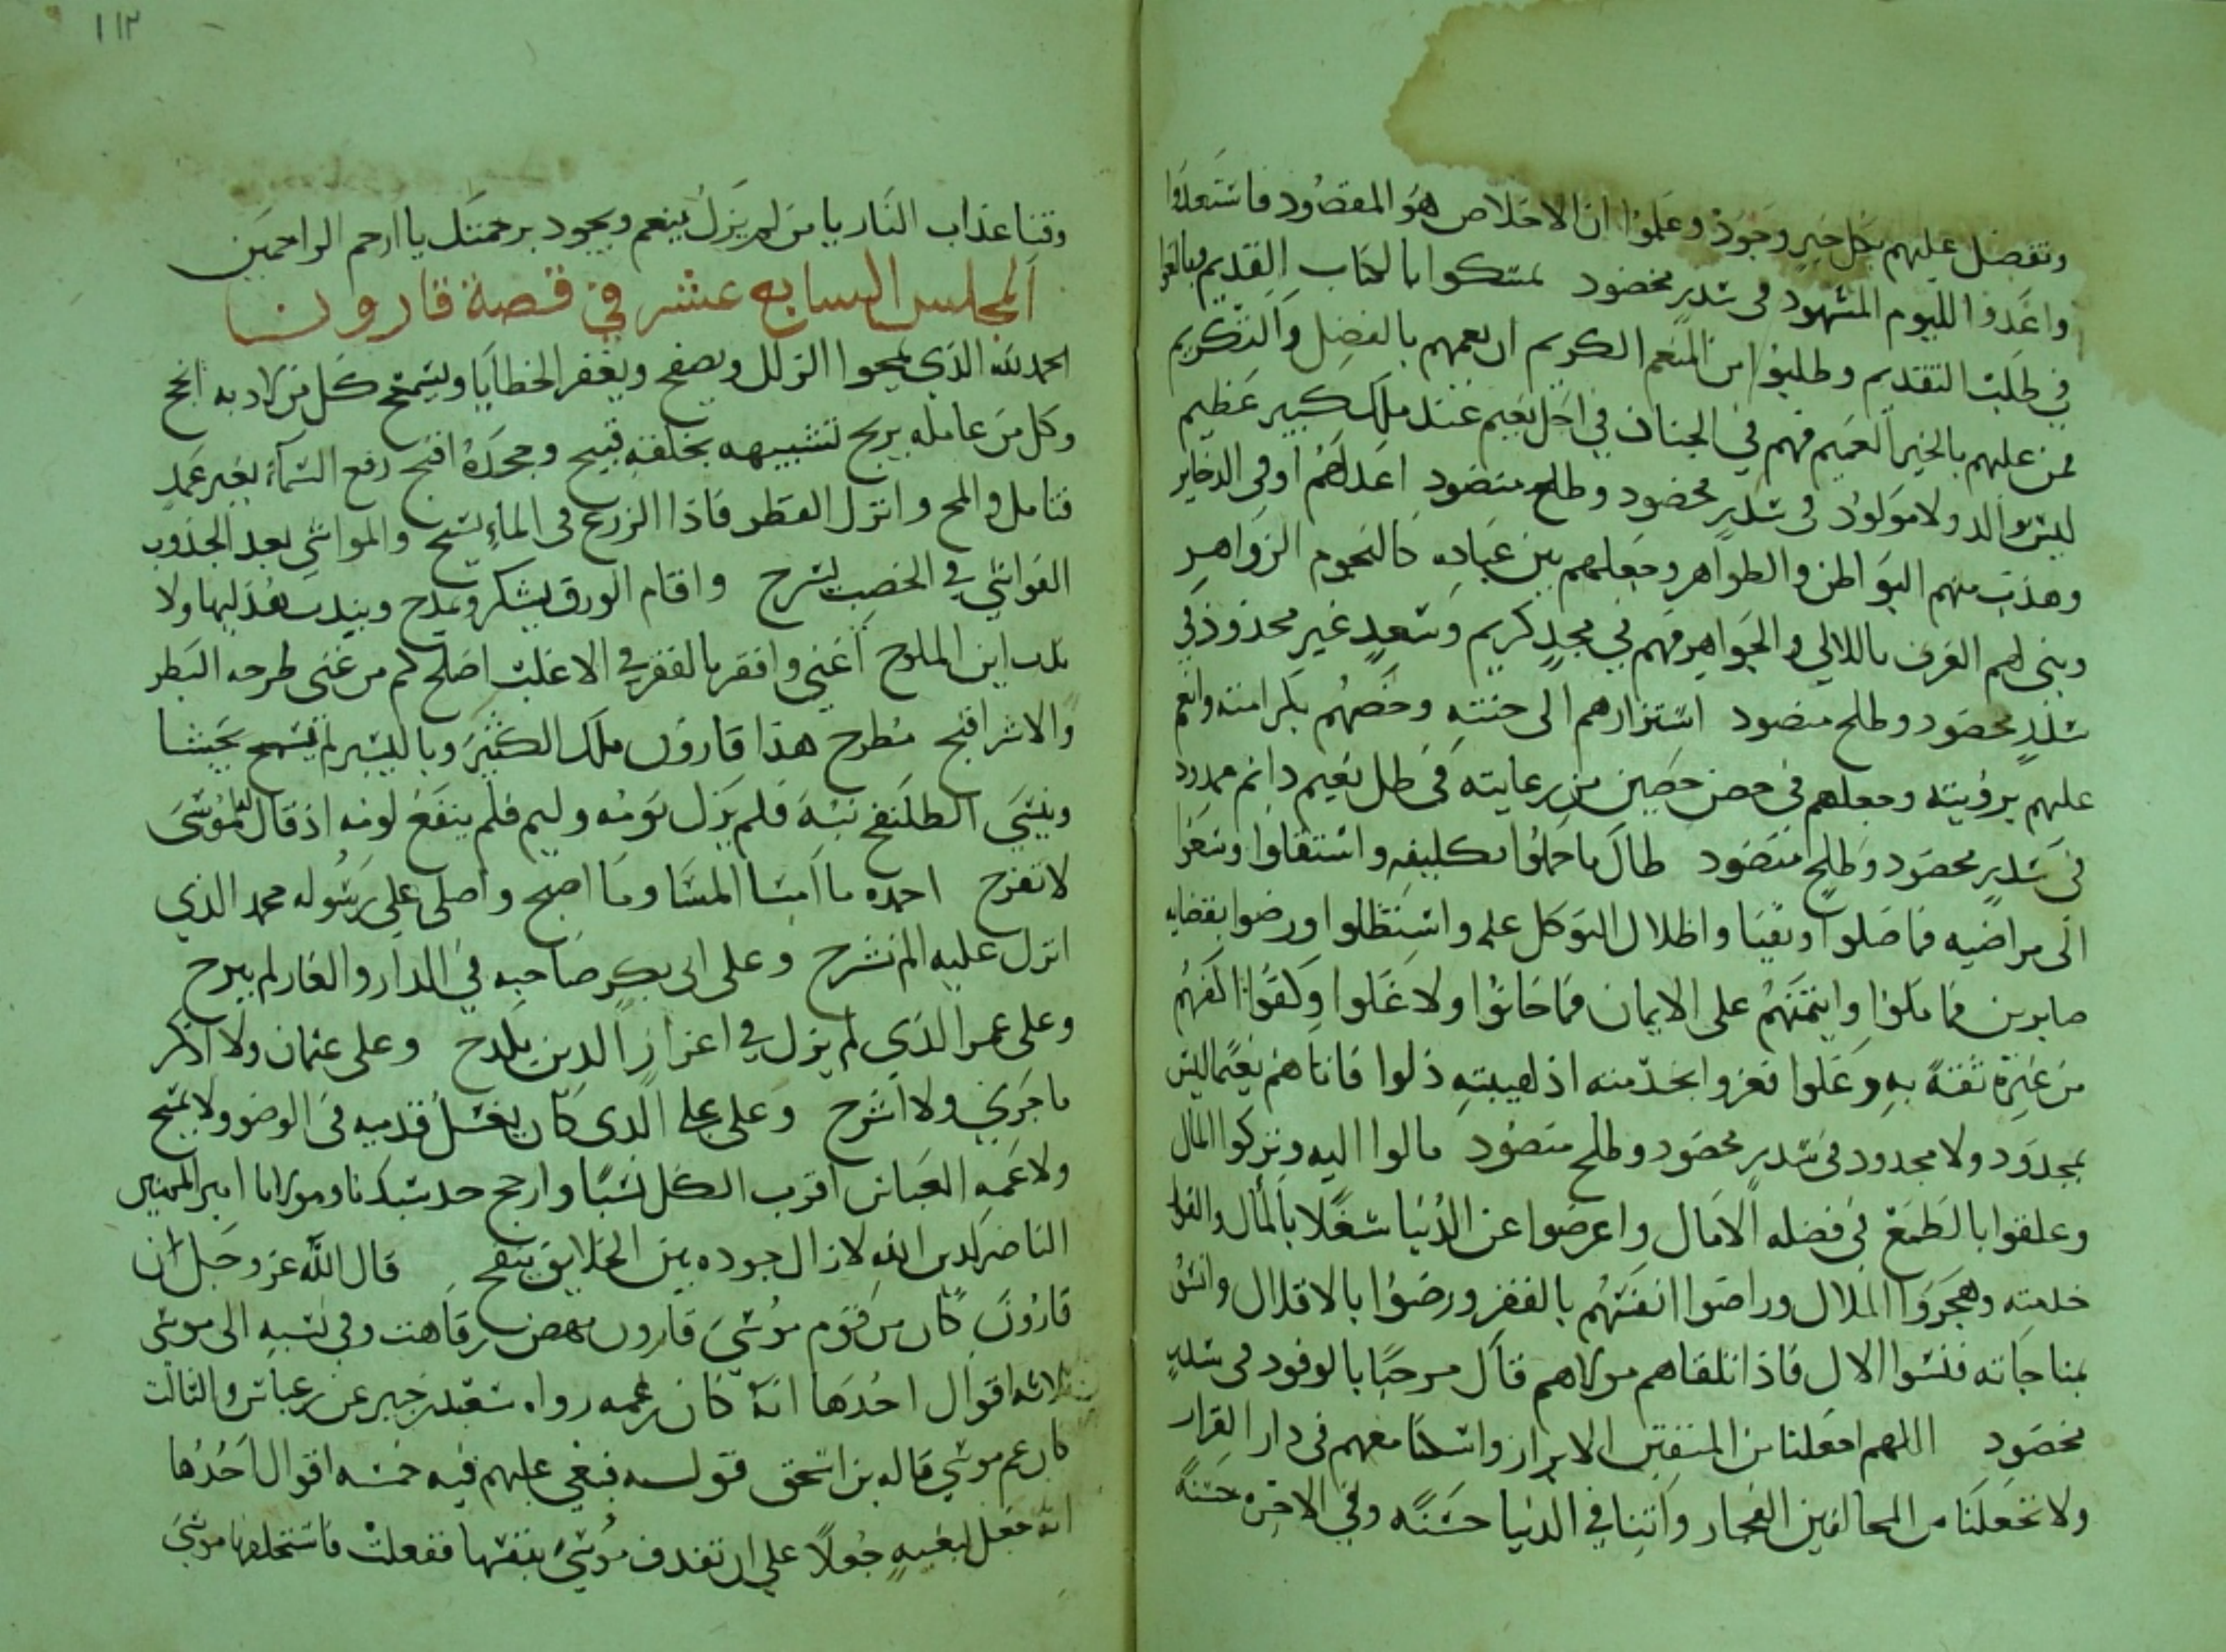 وتفضل عليهم بكل خير وجود وعلموا ان الاخلاص هو المقصود فاستعدوا
واعدوا لليوم المشهود في سدر مخضود تمسكوا بالكتاب القديم وبالغوا
في طلب التقديم وطلبوا من المنعم الكريم ان يعمهم بالفضل والتكريم
فمن عليهم بالخير العميم فهم في الجنان في اجل نعيم عند ملك كبير عظيم
ليس والد ولا مولود في سدر مخضود وطلح منضود اعد لهم اوفى الدخاير
وهذب منهم البواطن والظواهر وجعلهم بين عباده كالنجوم الزواهر
وبنى لهم الغرف باللالي والجواهر فهم في مجد كريم وسعد غير محدود في
سدر مخضود وطلح منضود استزارهم الى جنته وخصهم بكرامته وانعم
عليهم برؤيته وجعلهم في حصن حصين من رعايته في ظل نعيم دائم ممدود
في سدر مخضود وطلح منضود طال ما حملوا تكليفه واستقلوا وسعوا
الى مراضيه فما ضلوا وتفيا واظلال التوكل عليه واستظلوا ورضوا بقضايه
صابرين فما ملوا وايتمنهم على الايمان فما خانوا ولا غلوا وكفوا اكفهم
من غيره ثقة به وغلوا تعزوا بخدمته اذ لهيبته ذلوا فاتاهم نعيما ليس
بمجدود ولا محدود في سدر مخضود وطلح منضود مالوا اليه وتركوا المال
وعلقوا بالطمع في فضله الامال واعرضوا عن الدنيا شغلا بالمال والفوا
خدمته وهجروا الملال وراضوا انفسهم بالفقر ورضوا بالاقلال وانسوا
بمناجاته فنسوا الال فاذا تلقاهم مولاهم قال مرحبا بالوفود في سدر
مخضود اللهم اجعلنا من المتقين الابرار واسكنا معهم في دار القرار
ولا تجعلنا من المخالفين الفجار واتنا في الدنيا حسنة وفي الاخرة حسنة
١١٢
وقنا عذاب النار يا من لم يزل ينعم ويجود برحمتك يا ارحم الراحمين
المجلس السابع عشر في قصة قارون
الحمد لله الذي يمحوا الزلل ويصفح ويغفر الخطايا ويسمح كل من لاذ به انجح
وكل من عامله يربح تشبيهه بخلقه قبيح وجحده اقبح رفع السماء بغير عمد
فتامل والمح وانزل القطر فاذا الزرع في الماء يسبح والمواشي بعد الجدوب
الغواشي في الخصب تسرح واقام الورق يشكر ويمدح ويندب هذيلها ولا
يدب ابن الملوح اغنى وافقر بالفقر في الاغلب اصلح كم من غنى طرحه البطر
والاشر اقبح مطرح هذا قارون ملك الكثير وباليسير لم يسمح تجشا
وينسى الطلنفح نبه فلم يزل نومه وليم فلم ينفع لومه اذ قال له موسى
لا تفرح احمده ما امسا المسا وما اصبح واصلي على رسوله محمد الذي
انزل عليه الم نشرح وعلى ابي بكر صاحبه في الدار والغار لم يبرح
وعلى عمر الذي لم يزل في اعزاز الدين يكدح وعلى عثمان ولا اذكر
ما جرى ولا اشرح وعلى علي الذي كان يغسل قدميه في الوضو ولا يمسح
ولا عمه العباس اقرب الكل نسبا وارجح جد سيدنا ومولانا امير المومنين
الناصر لدين الله لا زال جوده بين الخلايق ينفح قال الله عز وجل ان
قارون كان من قوم موسى قارون بن يصهر بن قاهت وفي نسبه الى موسى
ثلاثة اقوال احدها انه كان بن عمه رواه سعيد بن جبير عن بن عباس والثالث
كان عم موسى قاله بن اسحق قوله فبغى عليهم فيه خمسه اقوال احدها
انه جعل لبغية جعلا على ان تقذف موسى بنفسها ففعلت فاستحلفها موسى